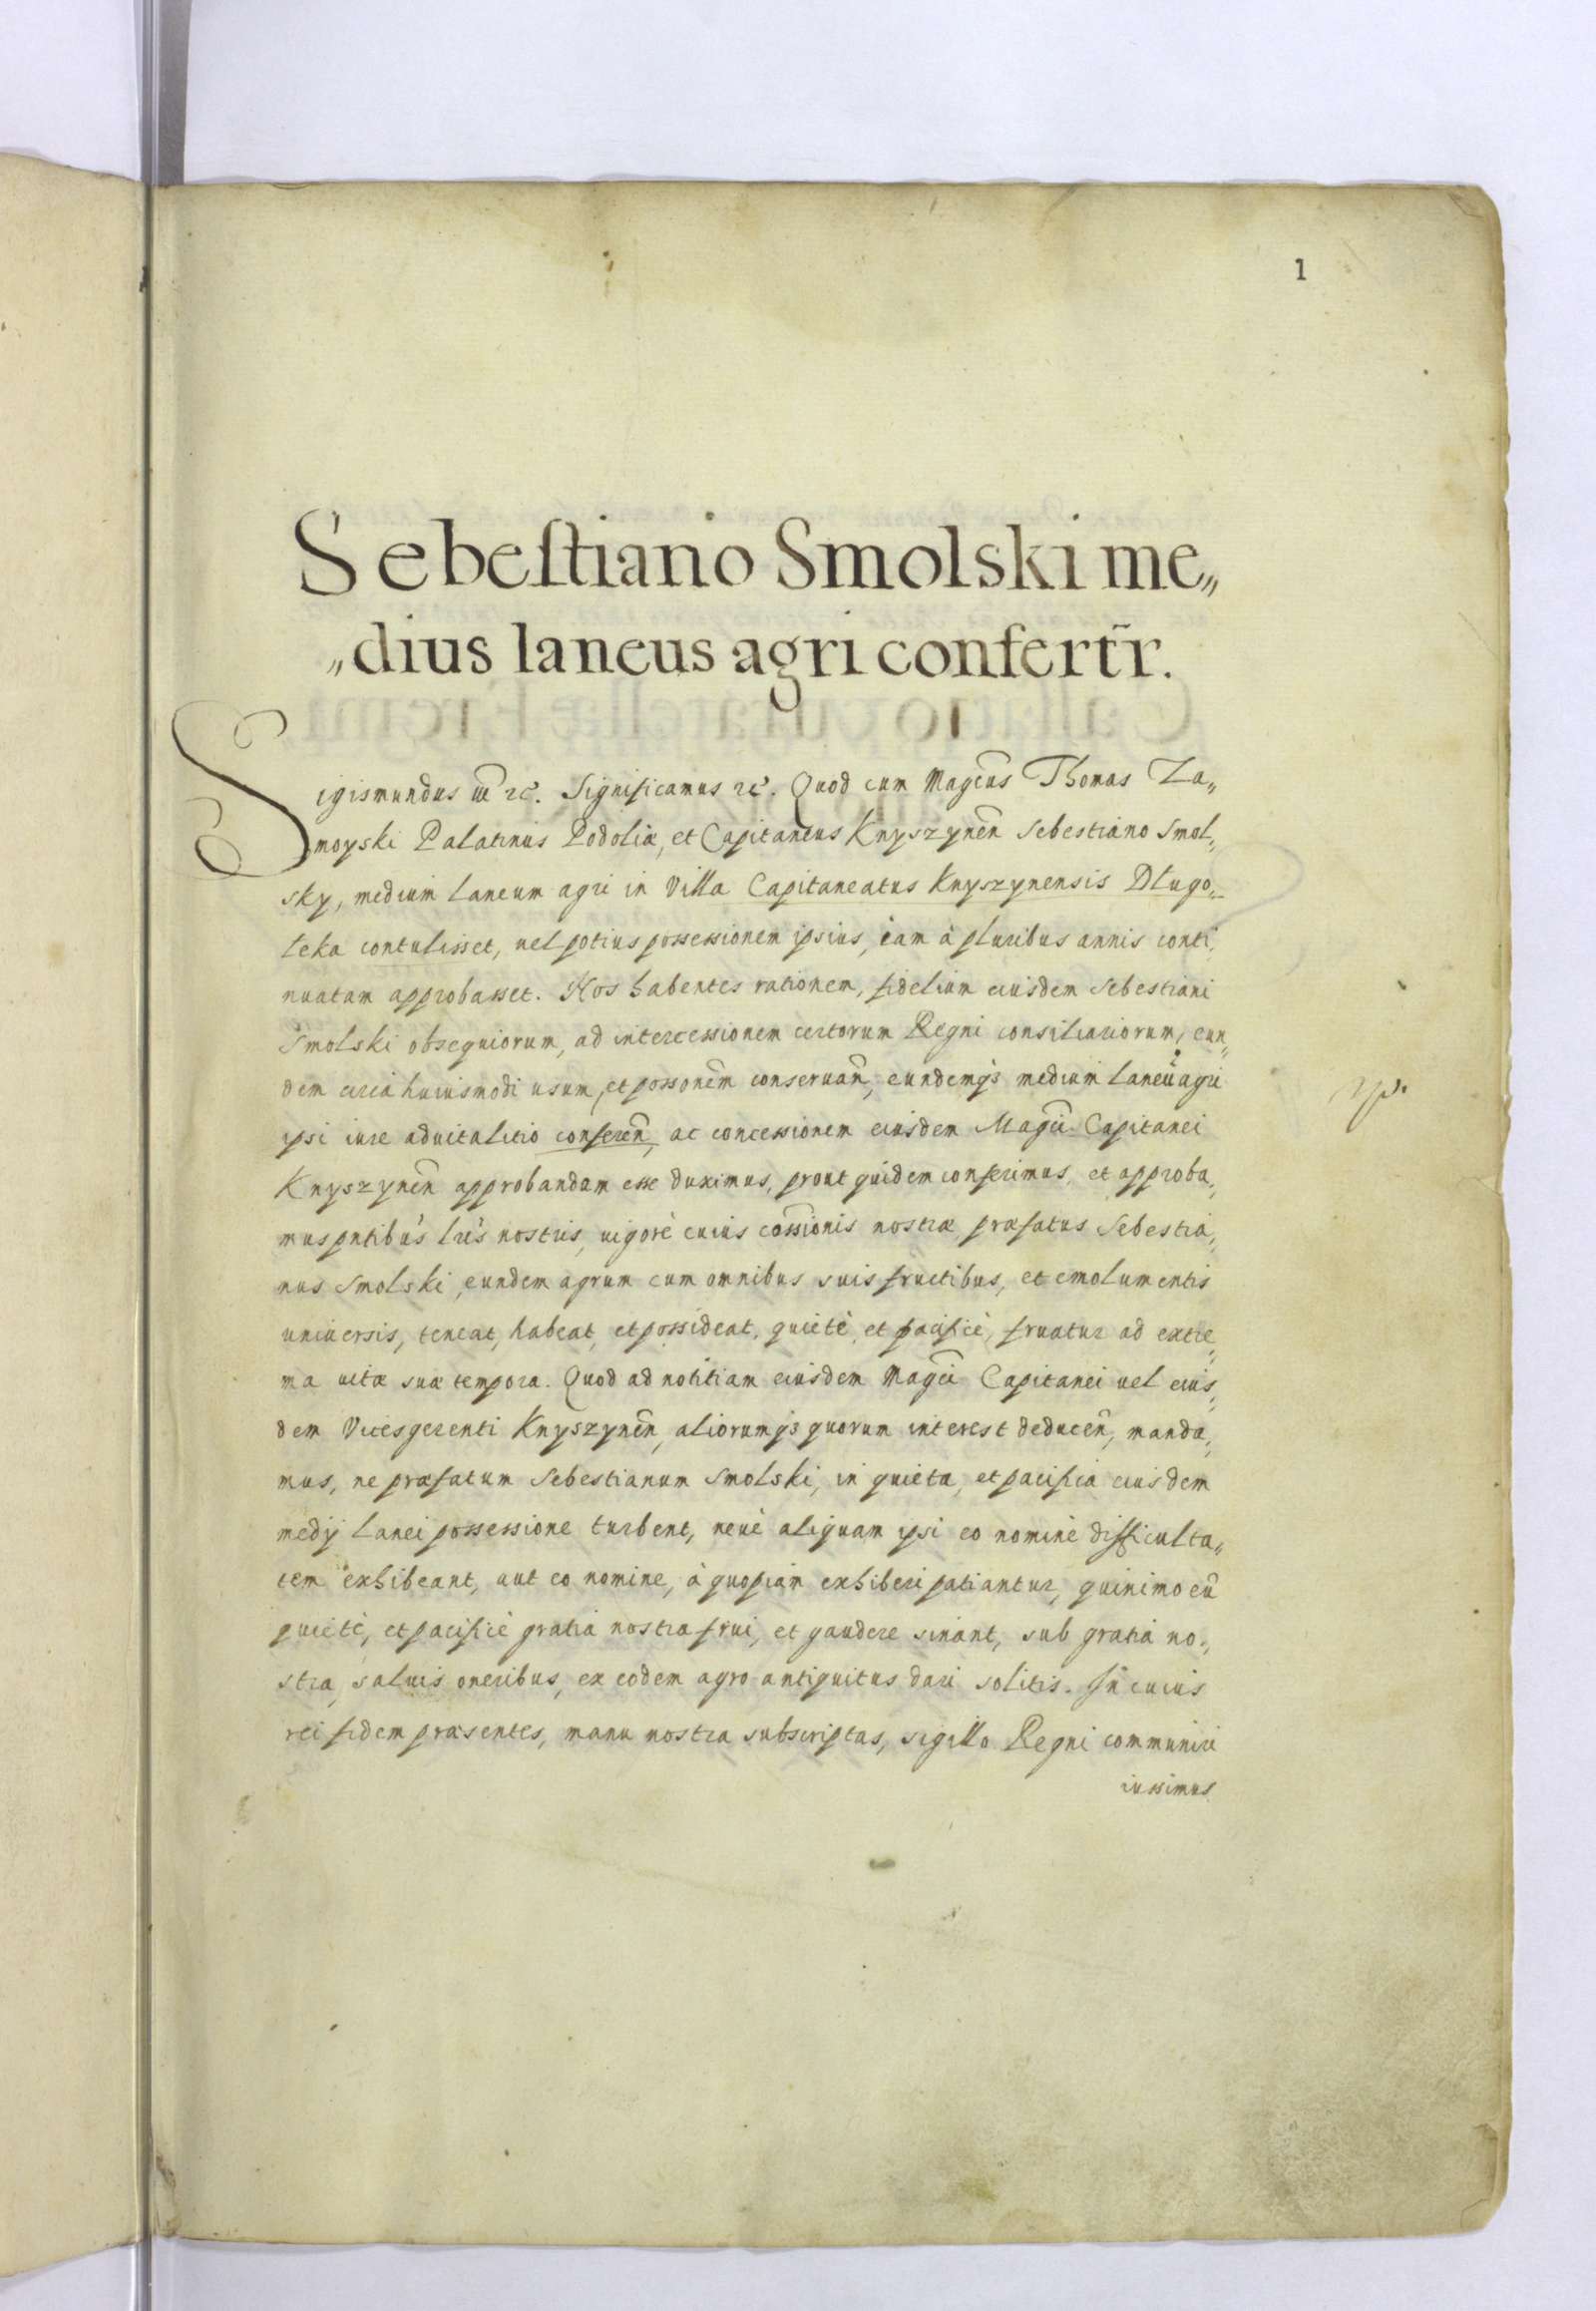 1
Sebeſtiano Smolski me„
„dius laneus agri confert̄r.
Sigismundus III rc. Significamus rc. Quod cum Magcus Thomas Za„
moyski Palatinus Podoliæ, et Capitaneus Knyszynen̄ Sebestiano Smol„
sky, medium laneum agri in Villa Capitaneatus Knyszynensis Dlugo„
leka contulisset, uel potius possessionem ipsius, iam à pluribus annis conti„
nuatam approbasset. Nos habentes rationem, fidelium eiusdem Sebestiani
Smolski obsequiorum, ad intercessionem certorum Regni consiliariorum, eun„
dem circa huiusmodi usum, et possonem̄ conseruan̄, eundemq3 medium laneū agri
ipsi iure aduitalitio conferen̄, ac concessionem eiusdem Magci Capitanei
Knyszynen̄ approbandam esse duximus, prout quidem conferimus, et approba„
mus pntibus lris nostris, uigore cuius cossionis nostræ præfatus Sebestia„
nus Smolski, eundem agrum cum omnibus suis fructibus, et emolumentis
uniuersis, teneat, habeat, et possideat, quietè, et pacificè, fruatur ad extre„
ma uitæ suæ tempora. Quod ad notitiam eiusdem Magci Capitanei uel eius„
dem Vicesgerenti Knyszynen̄, aliorumq3 quorum interest deducen̄, manda„
mus, ne præfatum Sebestianum Smolski, in quieta, et pacifica eiusdem
medij lanei possessione turbent, neuè aliquam ipsi eo nominè difficulta„
tem exhibeant, aut eo nomine, à quopiam exhiberi patiantur, quinimo eū
quietè, et pacificè gratia nostra frui, et gaudere sinant, sub gratia no„
stra, saluis oneribus, ex eodem agro antiquitus dari solitis. In cuius
rei fidem præsentes, manu nostra subscriptas, sigillo Regni communiri
iussimus